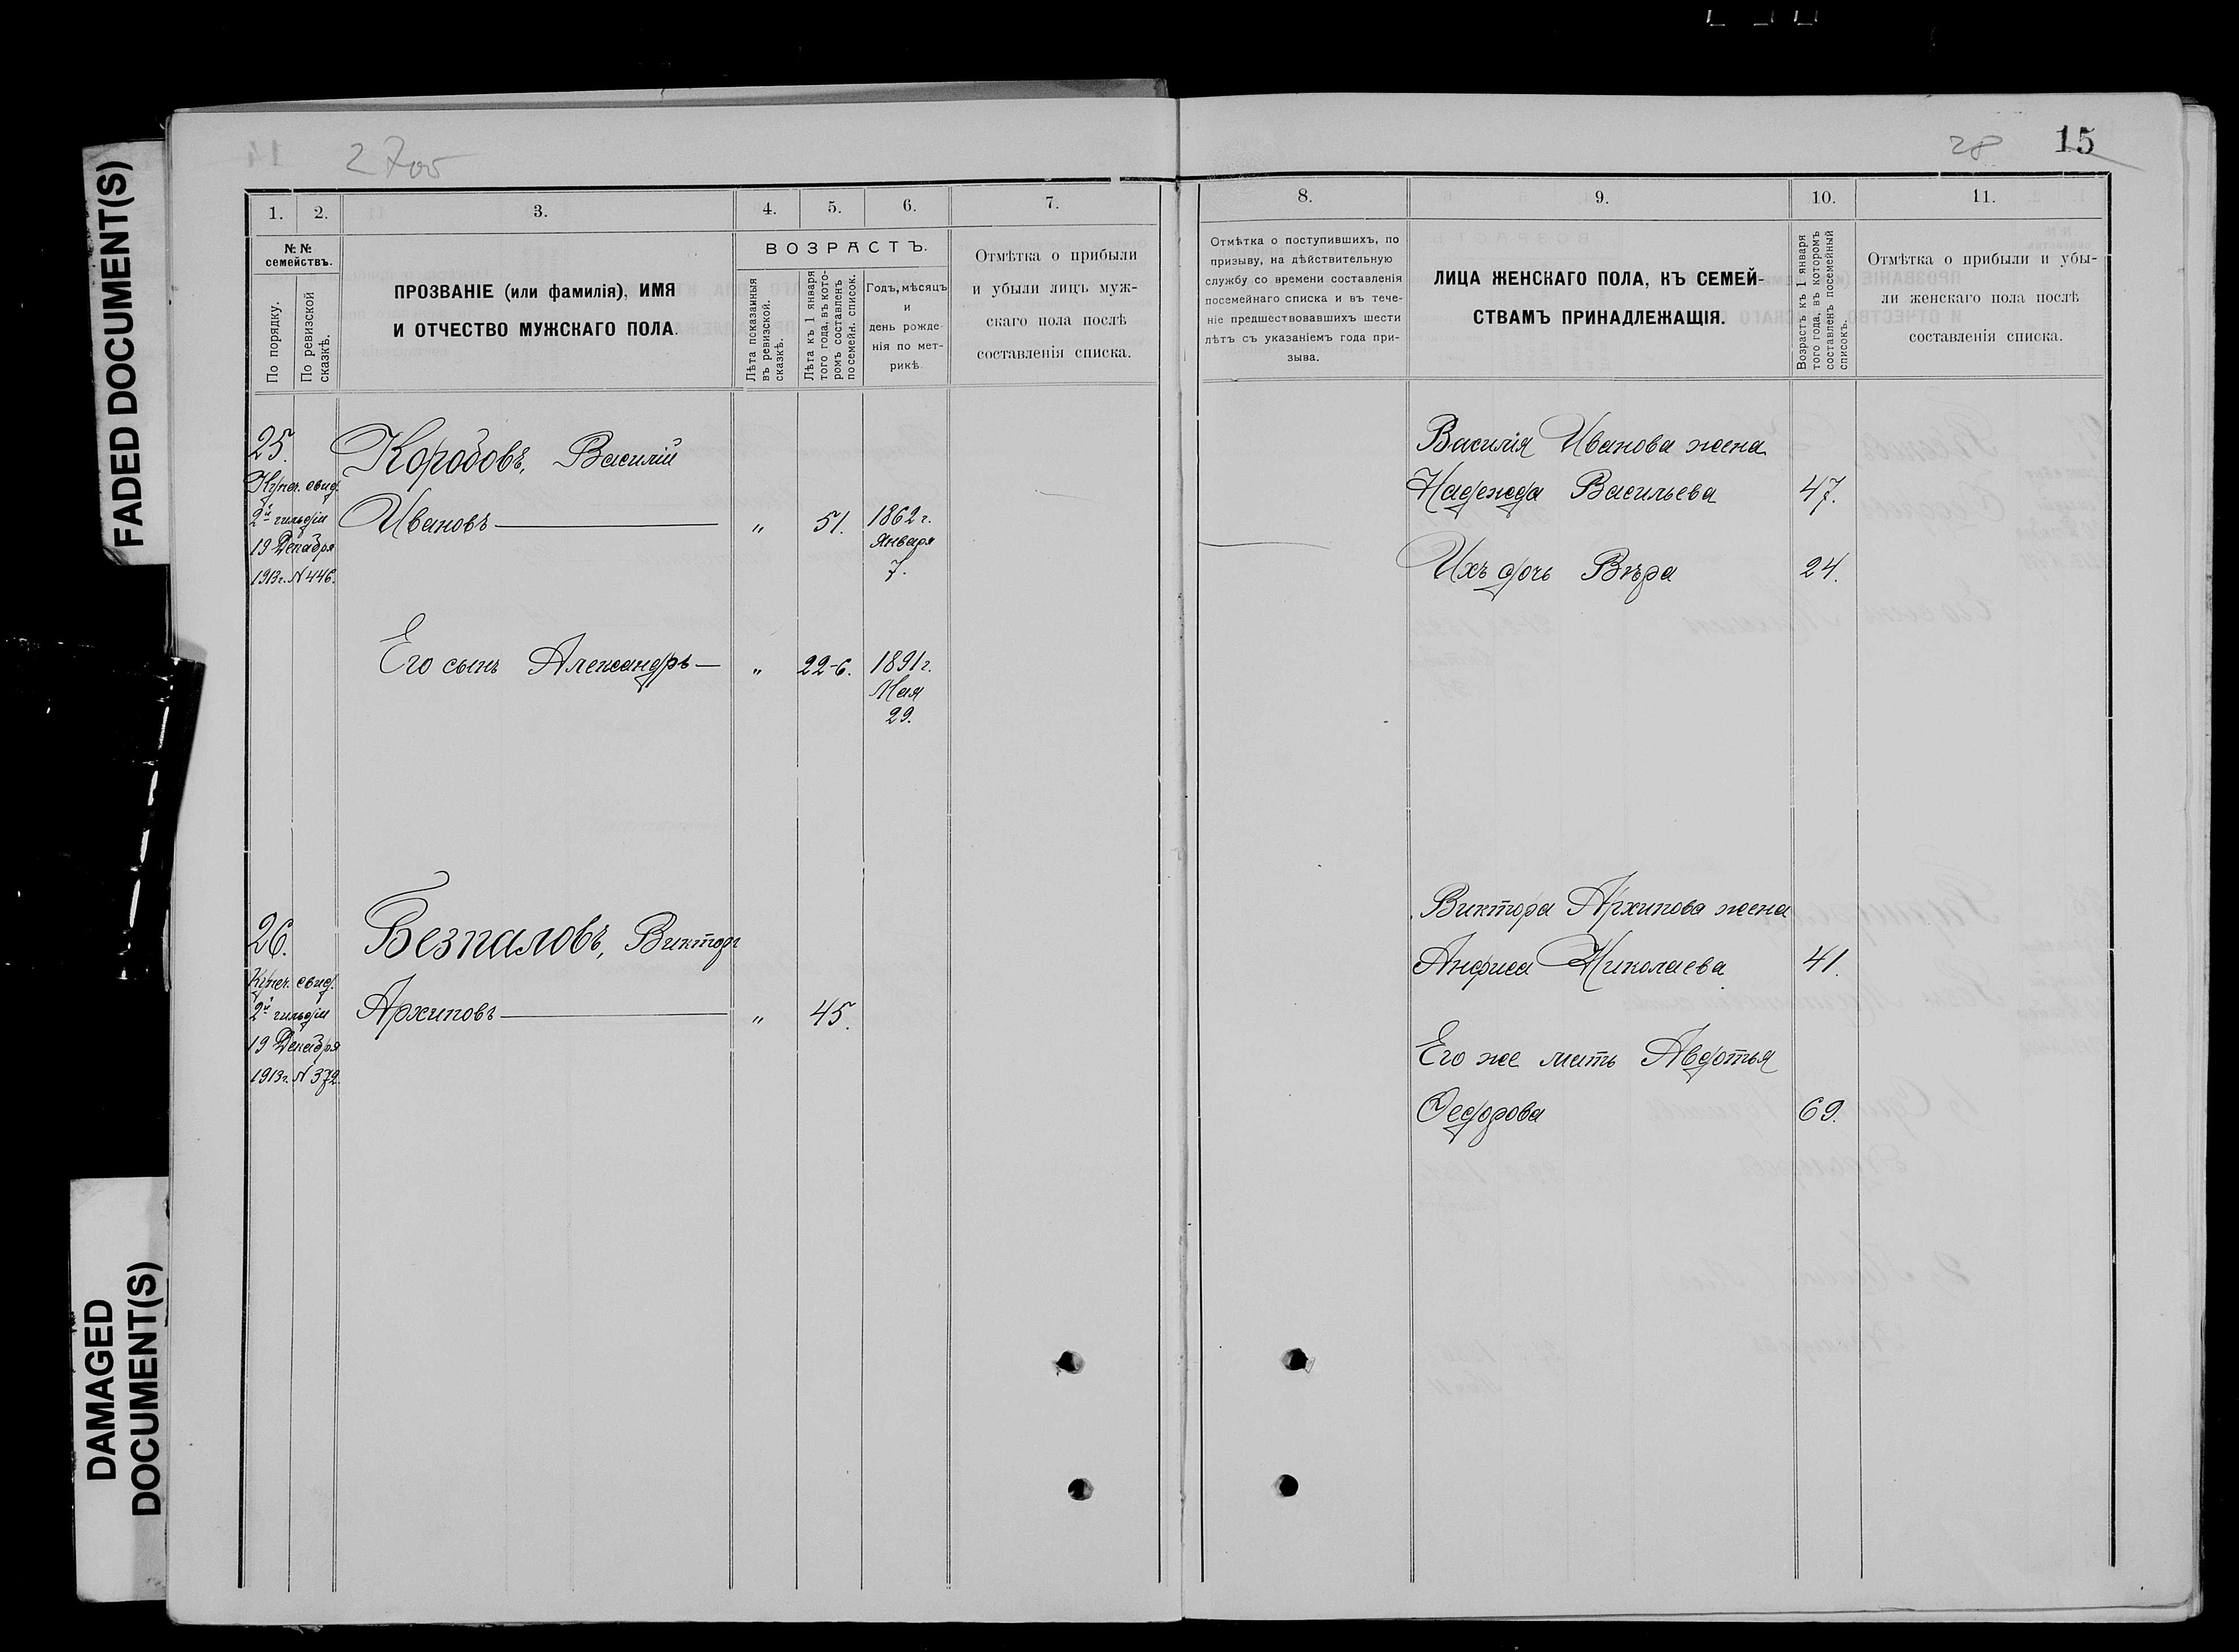 FADED DOCUMENT(S)
DAMAGED
DOCUMENT(S)
1.
2.
3.
4.
5.
6.
7.
№ №
семействъ.
По порядку.
По ревизской
сказкѣ.
ПРОЗВАНІЕ (или фамилія), ИМЯ
И ОТЧЕСТВО МУЖСКАГО ПОЛА.
ВОЗРАСТЪ.
Лѣта показанныя
въ ревизской.
сказкѣ.
Лѣта къ 1 января
того года, въ кото-
ромъ составленъ
посемейн. список.
Годъ, мѣсяцъ
и
день рожде-
нія по мет-
рикѣ.
Отмѣтка о прибыли
и убыли лицъ муж-
скаго пола послѣ
составленія списка.
25.
Купеч. свид.
2й гильдіи
19 Декабря
1913 г. N 446.
Коробовъ, Василій
Ивановъ „ 51. 1862 г.
Января
7.
Его сынъ Александръ „ 22-6. 1891 г.
Мая
29.
26.
Купеч. свид.
2й гильдіи
19 Декабря
1913 г. N 372.
Безпаловъ, Викторъ
Архиповъ „ 45.
28 15
8.
9.
10.
11.
Отмѣтка о поступившихъ, по
призыву, на дѣйствительную
службу со времени составленія
посемейнаго списка и въ тече-
ніе предшествовавшихъ шести
лѣтъ съ указаніемъ года при-
зыва.
ЛИЦА ЖЕНСКАГО ПОЛА, КЪ СЕМЕЙ-
СТВАМЪ ПРИНАДЛЕЖАЩІЯ.
Возрастъ къ 1 января
того года, въ которомъ
составленъ посемейный
списокъ.
Отмѣтка о прибыли и убы-
ли женскаго пола послѣ
составленія списка.
Василія Иванова жена
Надежда Васильева 47.
Ихъ дочь Вѣра 24.
Виктора Архипова жена
Анфиса Николаева 41.
Его же мать Авдотья
Ѳедорова 69.